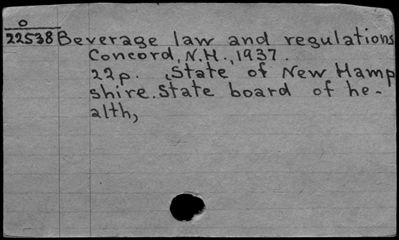 O
22538 Beverage law and regulations
Concord, N.H., 1937.
22p. (State of New Hamp
shire. State board of he-
alth,